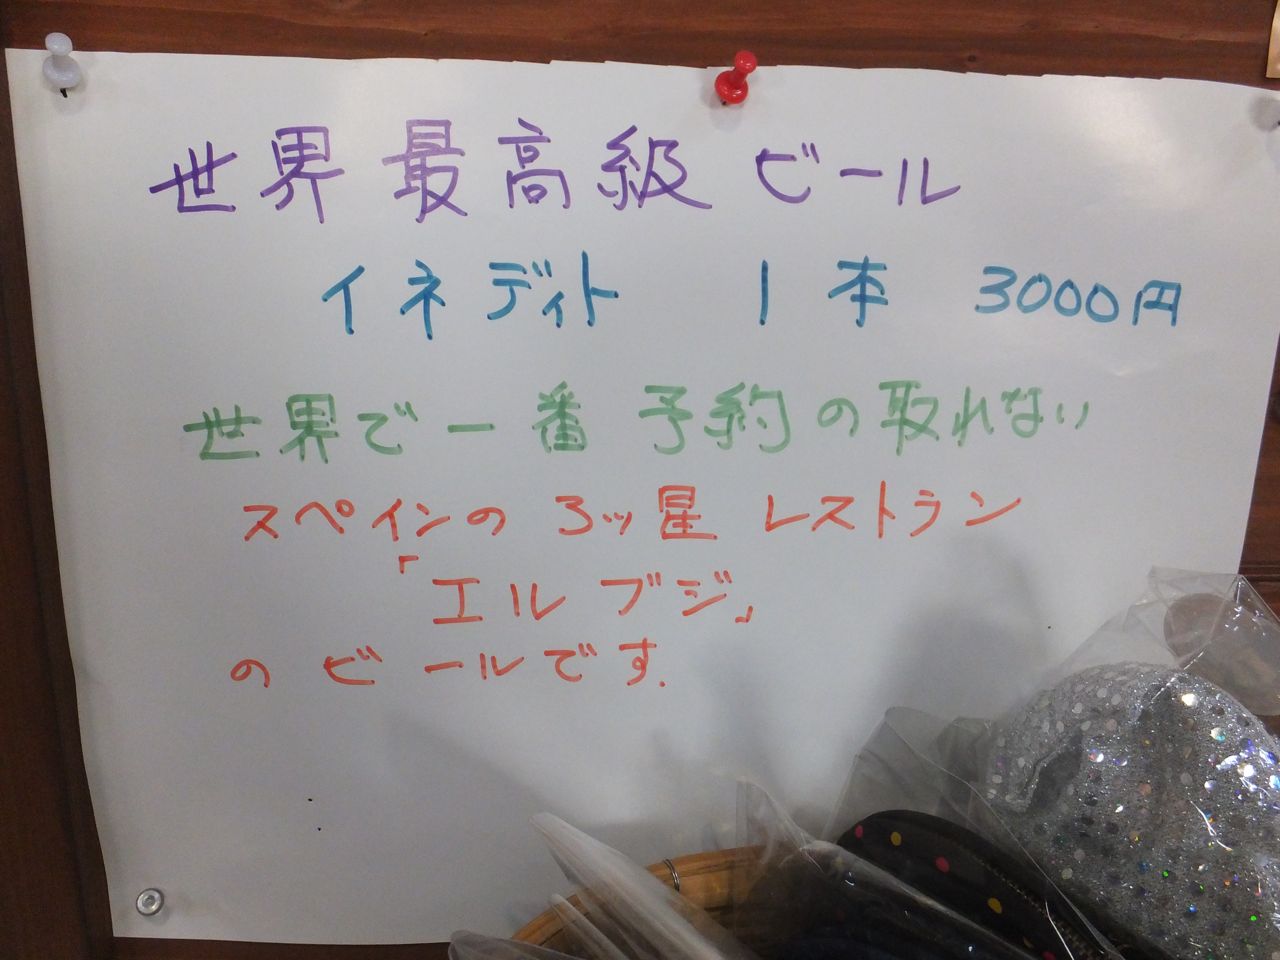 世界最高級ビール
イネディト 1本 3000円
世界で一番予約の取れない
スペインの3ッ星レストラン
「エルブジ」
のビールです.